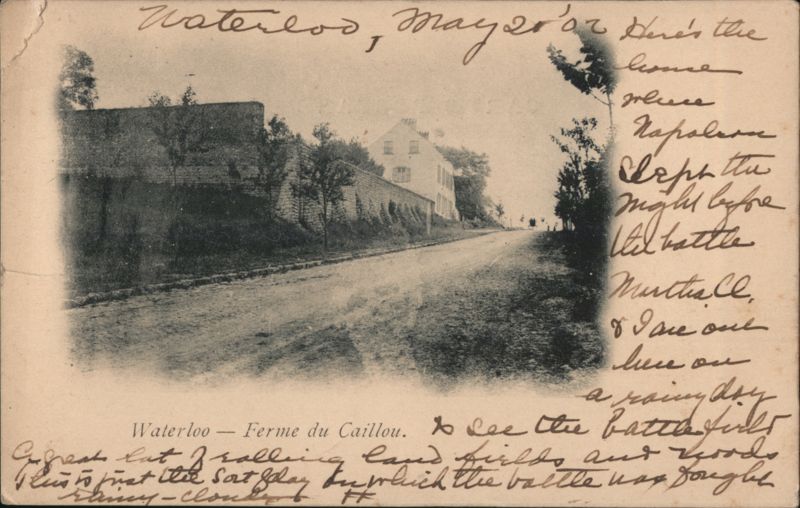 Waterloo, May 20' 02
Here's the
house
where
Napoleon
slept the
night before
the battle
Martha C.
& I are out
here on
a rainy day
Waterloo — Ferme du Caillou.
to see the battlefield
a great lot of rolling land fields and woods
This is just the sort of day on which the battle was fought
rainy - cloudy H